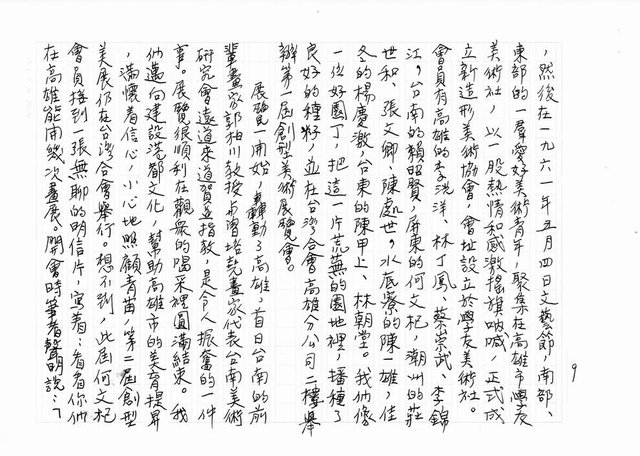 9
，然後在一九六一年五月四日文藝節，南部、
東部的一羣愛好美術青年，聚集在高雄市學友
美術社，以一股熱情和感激搖旗吶喊，正式成
立新造形美術協會，會址設立於學友美術社。
會員有高雄的李洸洋、林丁鳳、蔡崇武、李錦
江。台南的賴昭賢，屏東的何文杞，潮州的莊
世和、張文卿、陳處世。水底寮的陳一雄，佳
冬的楊慶激，台東的陳甲上、林朝堂。我們像
一位好園丁，把這一片荒蕪的園地裡，播種了
良好的種籽，並在台灣合會高雄分公司二樓舉
辦第一屆創型美術展覽會。
展覽一開始，轟動了高雄，首日台南的前
輩畫家郭柏川教授與曾培堯畫家代表台南美術
研究會遠道來道賀並指教，是令人振奮的一件
事。展覽很順利在觀眾的喝采裡圓滿結束。我
們邁向建設港都文化，幫助高雄市的美育提昇
，滿懷着信心，小心地照顧青苗，第二屆創型
美展仍在台灣合會舉行。想不到，此屆何文杞
會員接到一張無聊的明信片，寫着：看看你們
在高雄能開幾次畫展。開會時筆者聲明說：「